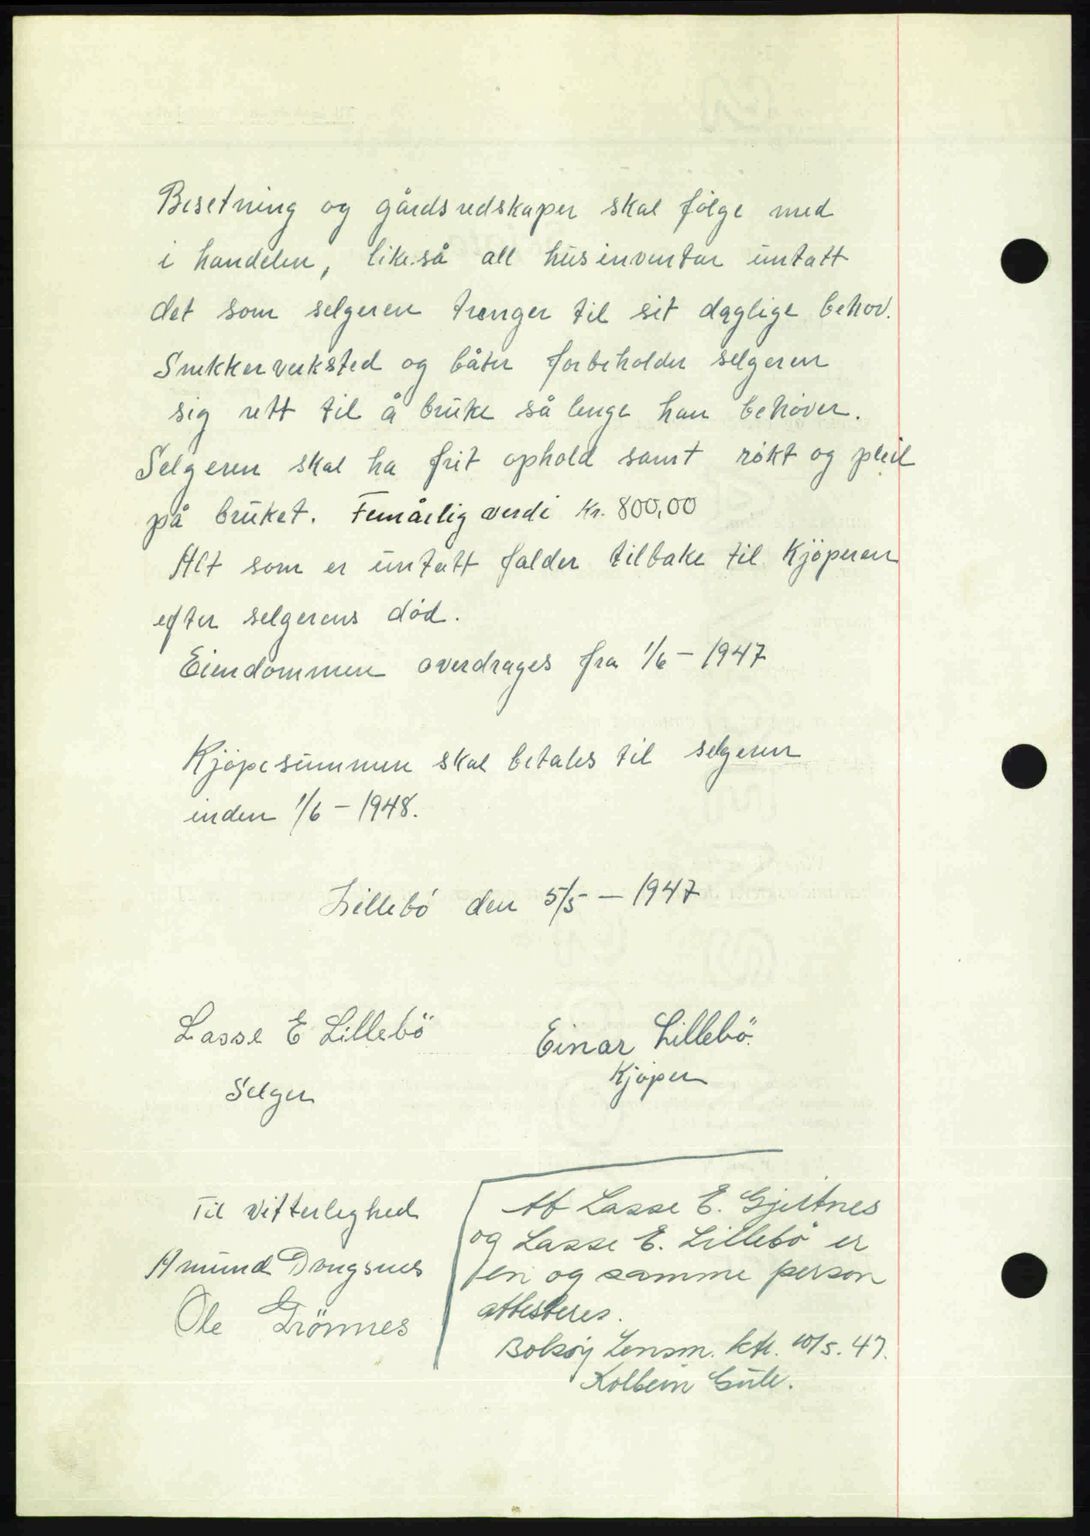 Besetning og gårdsredskaper skal følge med
i handelen, likeså all husinventar untatt
det som selgeren trenger til sit daglige behov.
Snekkerverksted og båter forbeholder selgeren
sig rett til å bruke så lenge han behøver.
Selgeren skal ha frit ophold samt røkt og pleie
på bruket. Femårlig verdi Kr. 800,00
Alt som er untatt falder tilbake til Kjøperen
efter selgerens død.
Eiendommen overdrages fra 1/6 - 1947
Kjøpesummen skal betales til selgeren
inden 1/6 - 1948.
Lillebö den 5/5 - 1947
Lasse E Lillebö
Selger
Einar Lillebö
Kjøper
Til Vitterleghed
Amund
Ole Grönnes
At Lasse E. Gjeitnes
og Lasse E. Lillebö er
en og samme person
attesteres.
Bolsøy Lensm. ktr. 10/5. 47.
Kolbein